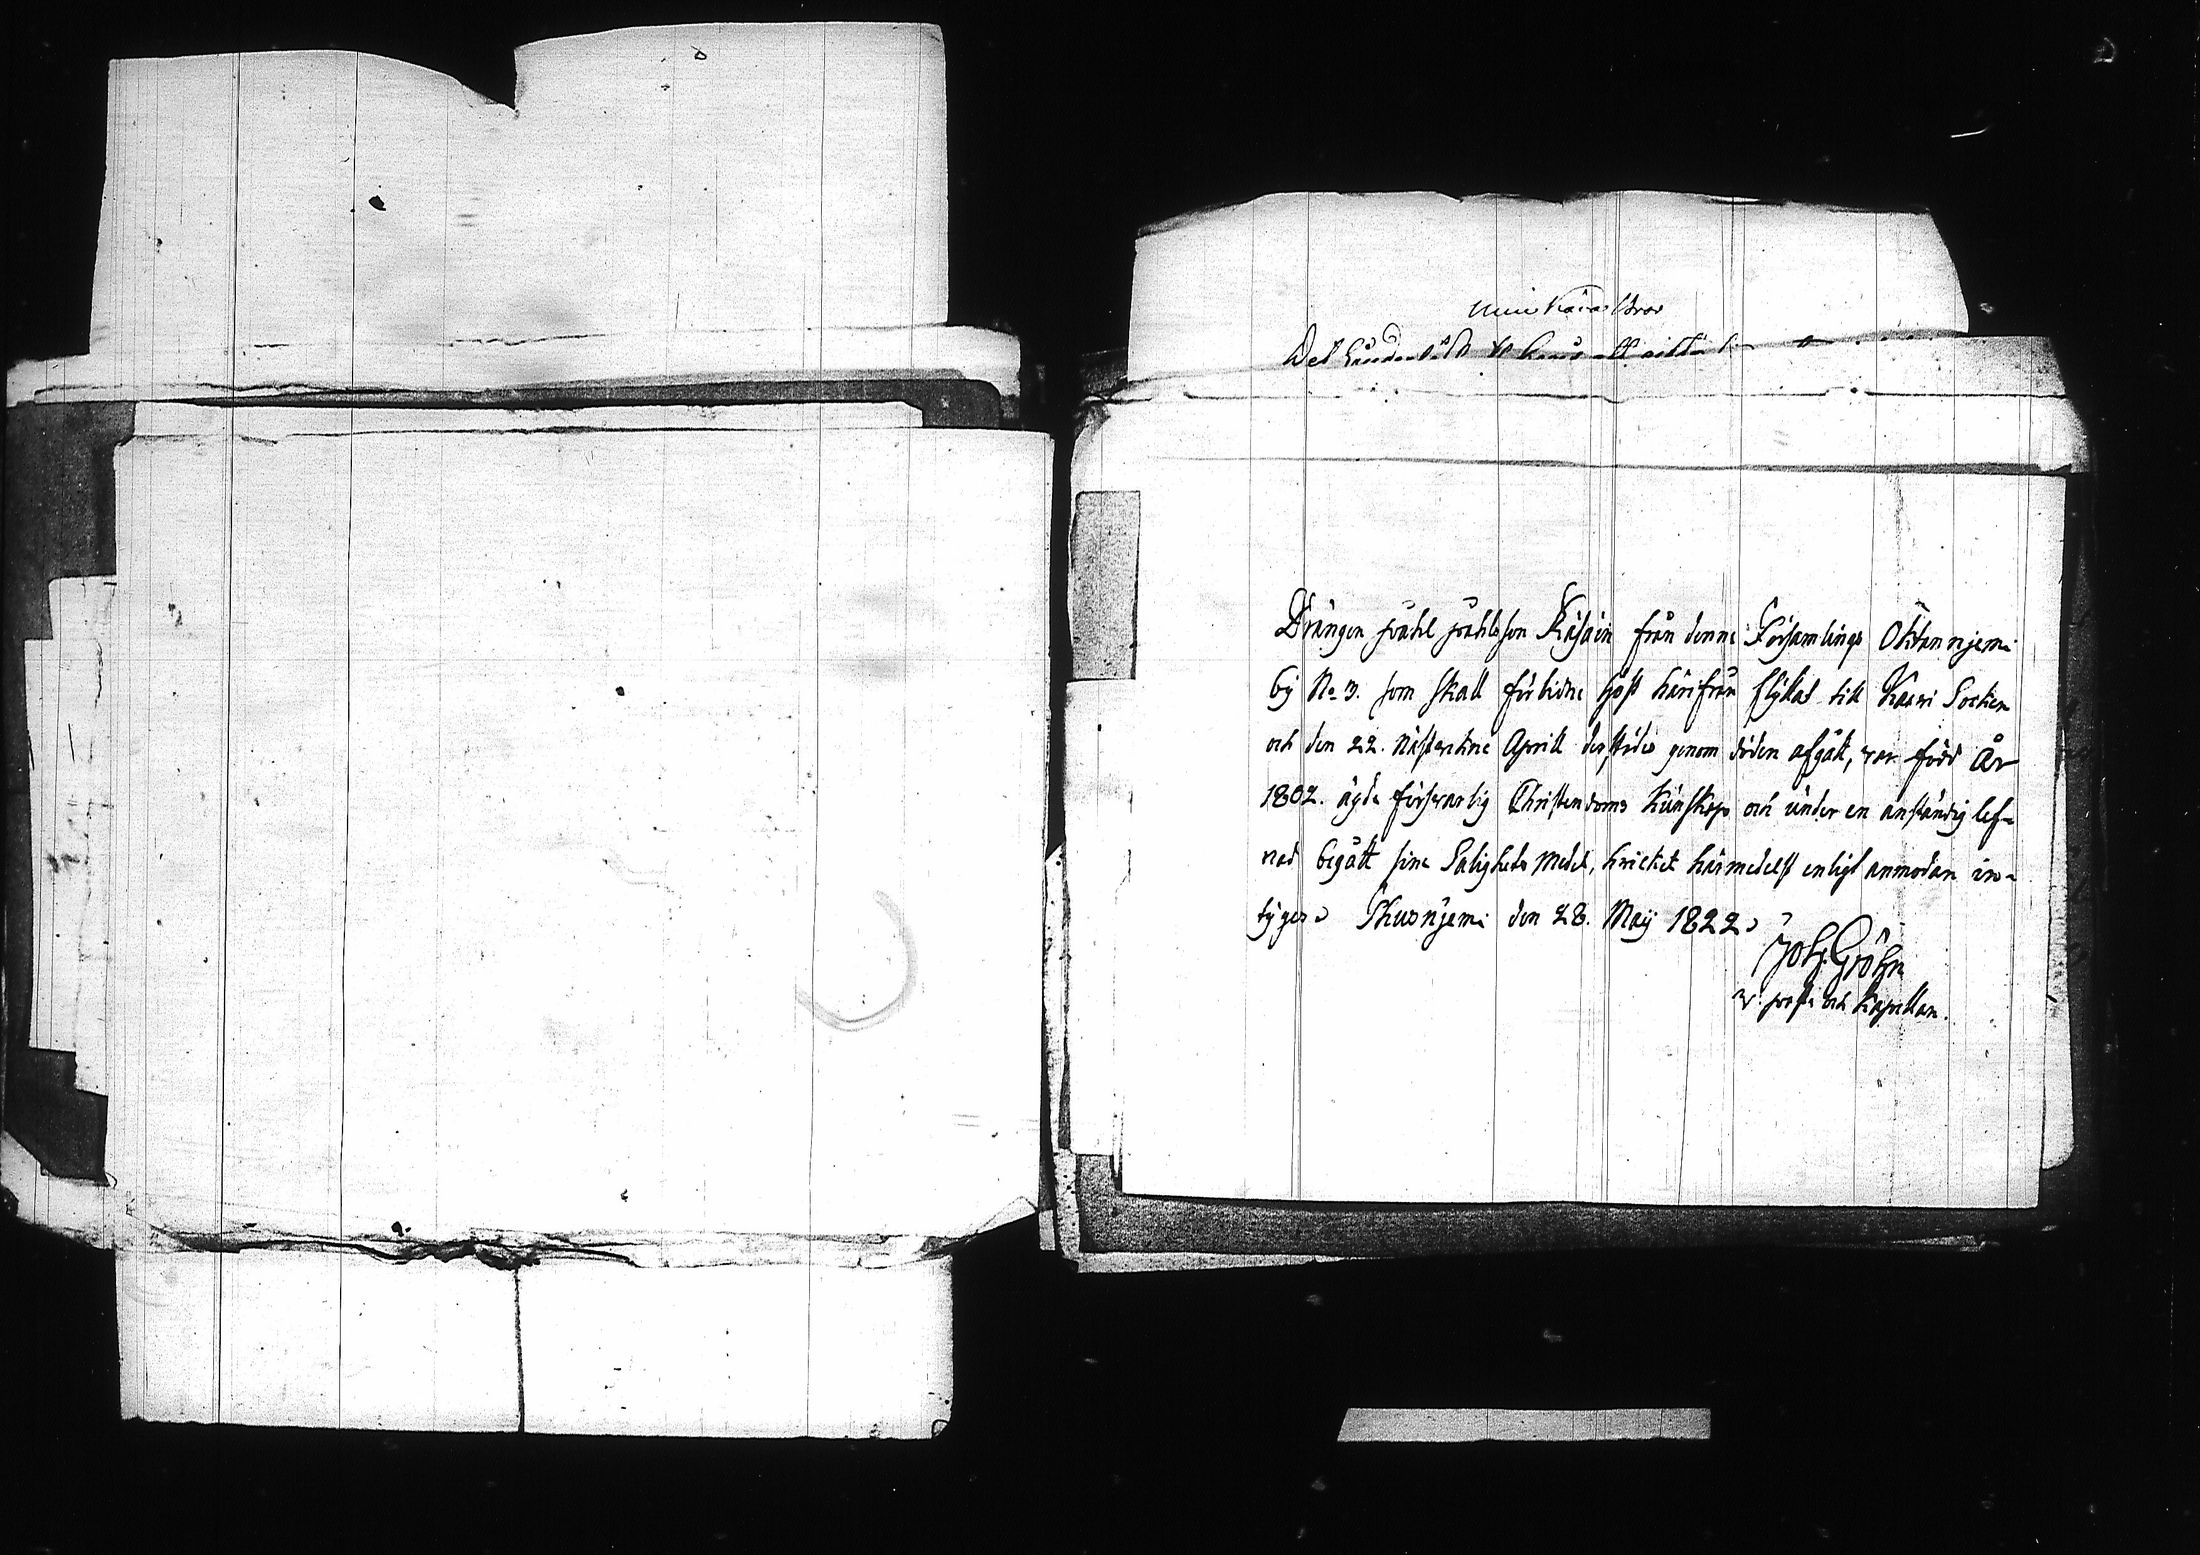 Min Kära Bror
Det händer
Drängen Påhl Påhlsson Käsäin från denne Församlings Oktannjemi
by No 3. som skall förlidne höst härifrån flyttat till Kaavi Socken
och den 22. nästvekne Aprill derstädes genom döden afgått, var född År
1802. ägde försvarlig Christendoms Kunskap och under en anständig lef-
nad begått sine Salighets Medel, hvilket härmedelst enligt anmodan in-
tygas. den 28. Maij 1822.
Joh. Gröhn
v. past. och Kapellan.